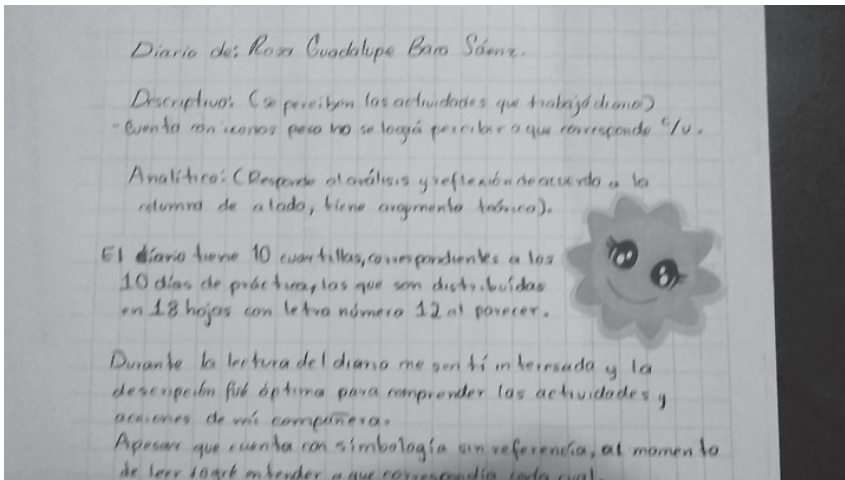 Diario de: Rosa Guadalupe Baro Sáenz.
Descriptivo: (se perciben las actividades que trabajó diario)
- Cuenta con iconos pero no se lográ percibir a que corresponde c/u.
Analítico: (Responde al análisis y reflexión de acuerdo a la
columna de a lado, tiene argumento teórico).
El diario tiene 10 cuartillas, correspondientes a los
10 días de práctica, las que son distribuídas
en 18 hojas con letra número 12 al parecer.
Durante la lectura del diario me sentí interesada y la
descripción fué óptima para comprender las actividades y
acciones de mi compañera.
Apesar que cuenta con simbología sin referencia, al momento
de leer logré entender a que correspondía cada cual.